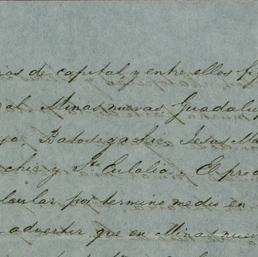 ios de capital, y entre ellos
al Minas nuevas Guadalu
yo, Batosegachic, Jesus Ma
chic y Sta Eulalia. O prod
cular por termino medio en
advertir que en Minas nue